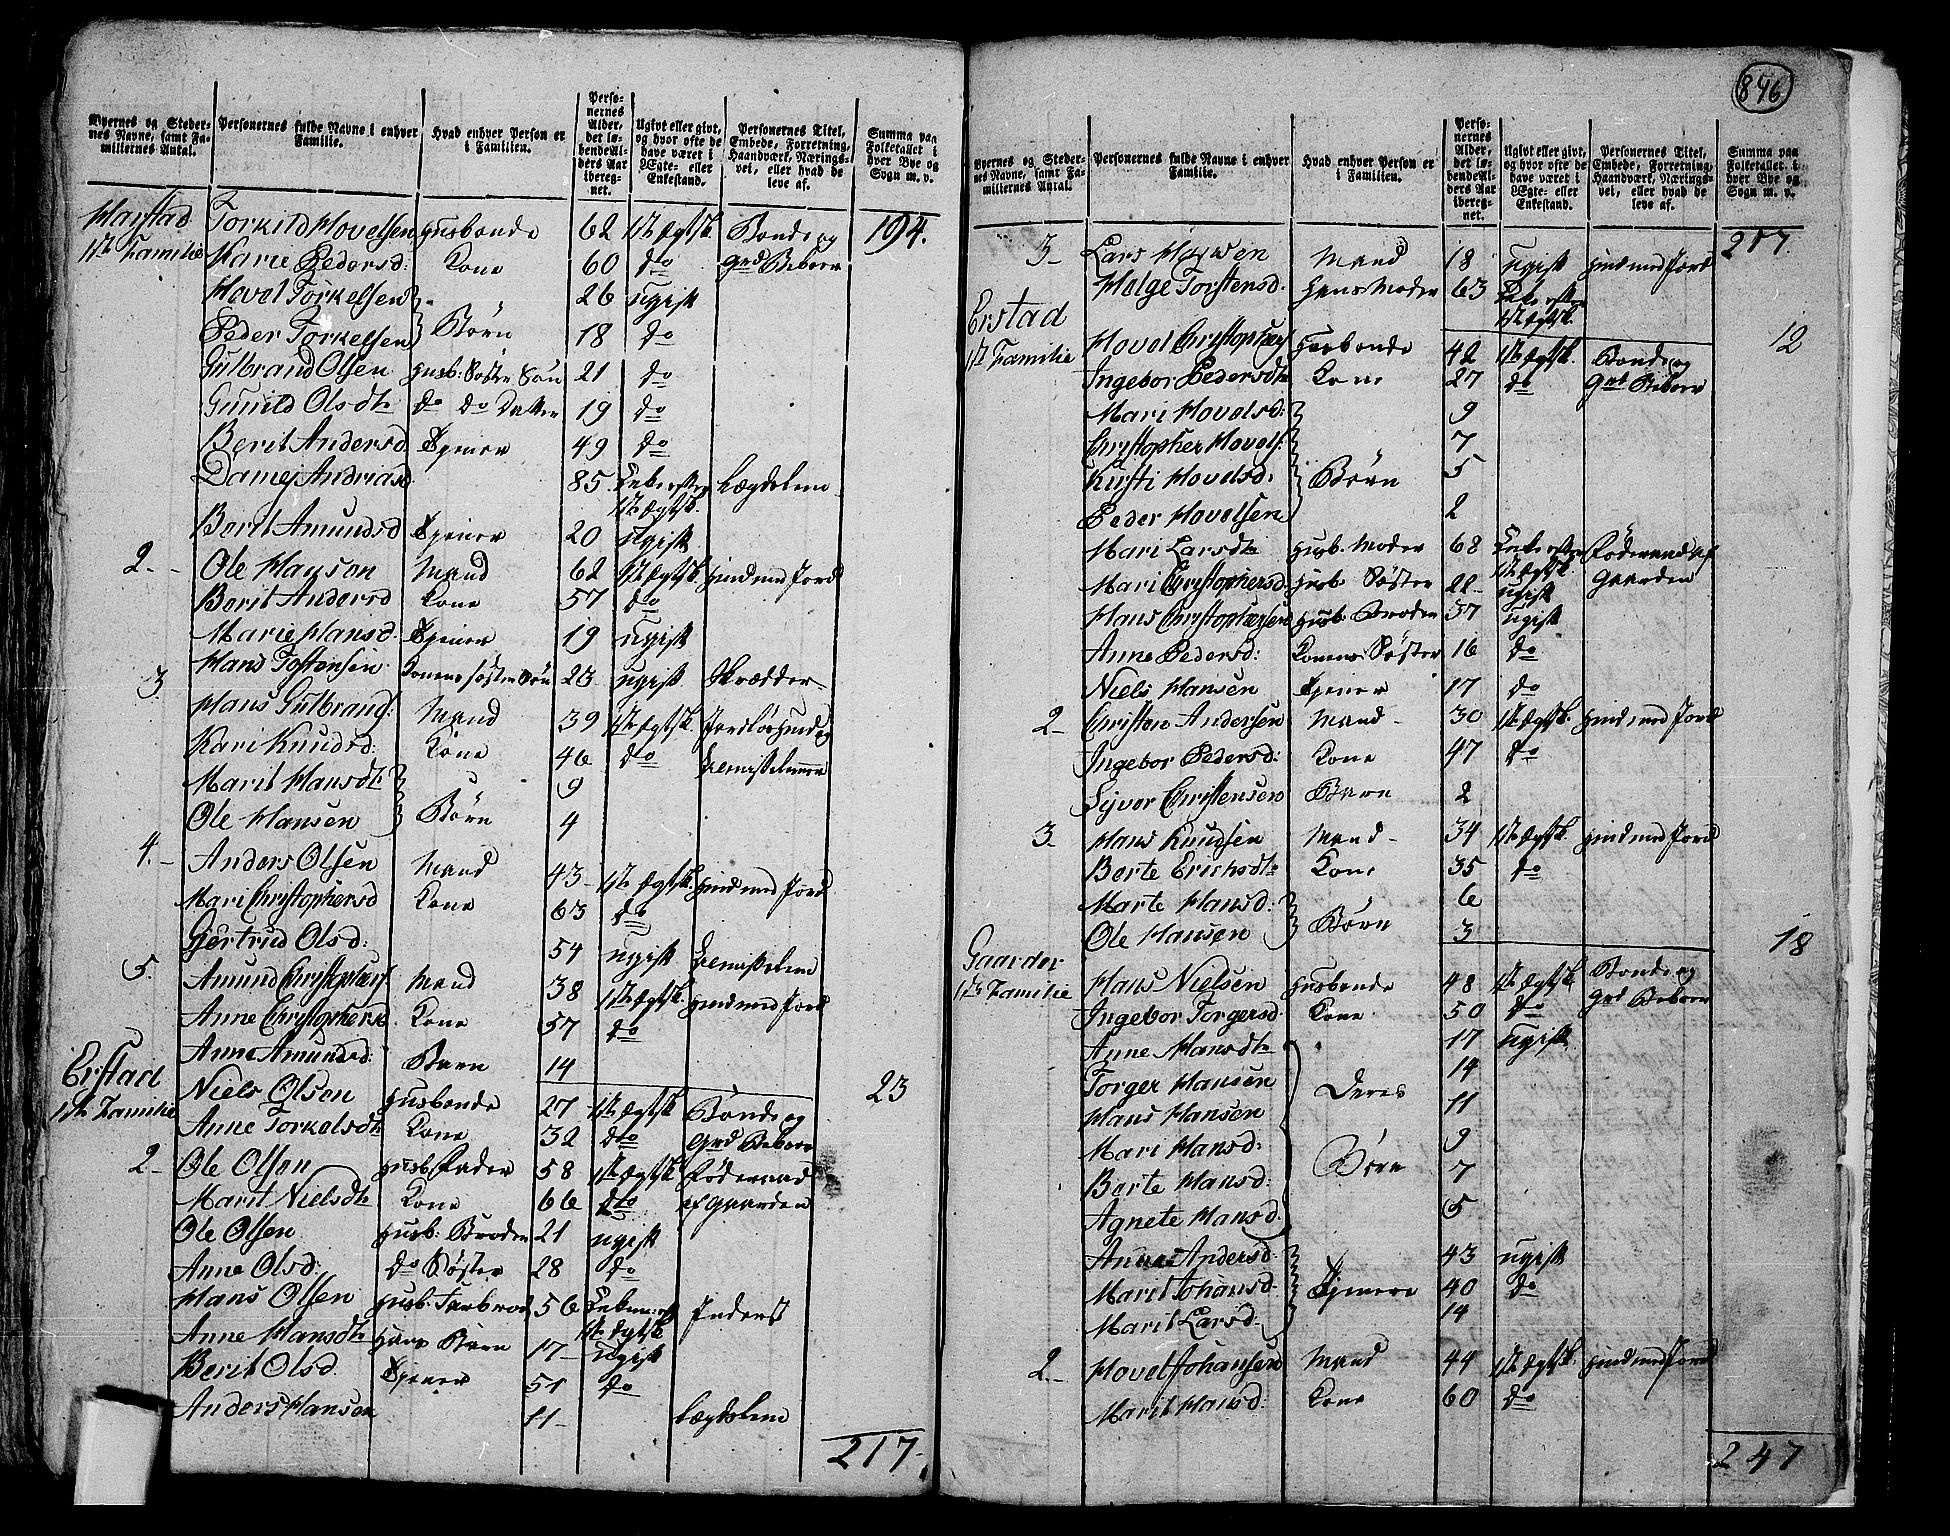 Byernes og Steder-
nes Navne, samt Fa-
miliernes Antal.
Personernes fulde Navne i enhver
Familie.
Hvad enhver Person er
i Familien.
Perso-
nernes
Alder,
det lø-
bende Al-
ders Aar
ibereg-
net.
Ugivt eller givt,
og hvor ofte de
have været i
Egte- eller
Enkestand.
Personernes Titel,
Embede, Forretning,
Haandværk, Nærings-
vei, eller hvad de
leve af.
Summa paa
Folketallet i
hver Bye og
Sogn m. v.
Harstad Torkild Hovelsen Husbonde 62 1ste Ægtsk. Bonde og 194.
1ste Familie Marie Pedersd: Kone 60 do Grd Beboer
Hovel Torkelsen 26 Ugift
Peder Torkelsen Børn 18 do
Gulbrand Olsen Husb: Søster Søn 21 do
Gunild Olsdtr do do Datter 19 do
Berit Andersd Tjener 49 do
Andriasd 85 Enke efter Lægdslem
1ste Ægtsk.
Berit Amundsd Tjener 20 Ugift
2. Ole Hanson Mand 62 1ste Ægtsk. Huusmed Jord
Berit Andersd Kone 57 do
Marie Hansd Tjener 19 Ugift
Hans Tostensen Konens Søster Søn 23 ugift Skrædder
3. Hans Gulbrands: Mand 39 1ste Ægtsk. Jordløs Huusm og
Kari Knudsd: Kone 46 do Lemislemmer
Marit Hansdtr 9
Ole Hansen Børn 4
4. Anders Olsen Mand 43 1ste Ægtsk. Huusmed Jord
Mari Christophersd Kone 63 do
Gertrud Olsd: 54 ugift Lemislem
5. Amund Christophers Mand 38 1ste Ægtsk. Huusmed Jord
Anne Christophersd Kone 57 do
Anne Amundsd: Barn 14
Erstad Niels Olson Husbonde 27 1ste Ægtsk. Bonde og 23
1ste Familie Anne Torkelsdtr Kone 32 do Grd Beboer
2 Ole Olsen Husb Fader 58 1ste Ægtsk Føderaad
Marit Nielsdtr Kone 66 do af Gaarden
Ole Olsen Husb: Broder 21 ugift
Anne Olsd: do Søster 28 do
Hans Olsen Husb: Farbroder 56 Enkem: eft Inderst
1ste Ægtsk
Anne Hansdtr Hans Barn 17 ugift
Berit Olsd. Tjener 51 do
Anders Hansen 11 Lægdslem
217.
896
Byernes og Steder-
nes Navne, samt Fa-
miliernes Antal.
Personernes fulde Navne i enhver
Familie.
Hvad enhver Person er
i Familien.
Perso-
nernes
Alder,
det lø-
bende Al-
ders Aar
ibereg-
net.
Ugivt eller givt,
og hvor ofte de
have været i
Egte- eller
Enkestand.
Personernes Titel,
Embede, Forretning,
Haandværk, Nærings-
vei, eller hvad de
leve af.
Summa paa
Folketallet i
hver Bye og
Sogn m. v.
3 Lars Mand 18 ugift Huusmed Jord 217.
Helge Torstensd. Hans Moder 63 Enke efter
1ste Ægtsk.
Erstad
1ste Familie Hovel Christophers Husbonde 42 1ste Ægtsk. Bonde og 12
Ingebor Pedersdtr Kone 27 do Grd Beboer
Mari Hovelsd: 9
Christopher Hovels: 7
Kirsti Hovelsd: Børn 5
Peder Hovelsen 2
Mari Larsdtr Husb. Moder 68 Enke efter Føderaad af
1ste Ægtsk. Gaarden
Mari Christophersd: Husb Søster 22 ugift
Hans Christophersen Husb Broder 37 ugift
Anne Pedersd: Konens Søster 16 do
Niels Hansen Tjener 17 do
2 Christen Andersen Mand 30 1ste Ægtsk. Huusmed Jord
Ingebor Pedersd: Kone 47 do
Syver Christensen Barn 2
3 Hans Knudsen Mand 34 1ste Ægtsk. Huusmed Jord
Berte Erichsdtr Kone 35 do
Marte Hansd: 6
Ole Hansen Børn 3
Gaarder 18
1ste Familie Hans Nielsen Husbonde 48 1ste Ægtsk Bonde og
Ingebor Torgersd. Kone 50 do Grd Beboer
Anne Hansdtr 17 ugift
Torger Hansen 14
Hans Hansen Deres 11
Mari Hansd: 9
Berte Hansd: Børn 7
Agnete Hansd. 5
Anne Andersd: 43 ugift
Marit Johansd. Tjenere 40 do
Marit Larsd: 14
2 Hovel Johansen Mand 44 1ste Ægtsk. Huusmed Jord
Marit Hansd: Kone 60 do
247